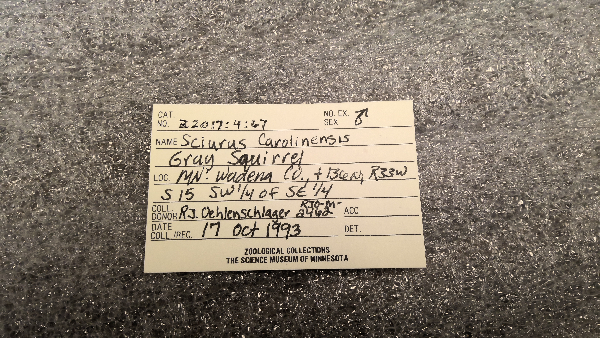 CAT. NO. Z2017:4:67 NO. EX. SEX ♂
NAME Sciurus Carolinensis
Gray Squirrel
LOC. MN: Wadena Co., T136N, R33W
S 15 SW 1/4 of SE 1/4
COLL. DONOR R.J. Oehlenschlager RJO-M-2962 ACC.
DATE COLL./REC. 17 Oct 1993 DET.
ZOOLOGICAL COLLECTIONS
THE SCIENCE MUSEUM OF MINNESOTA